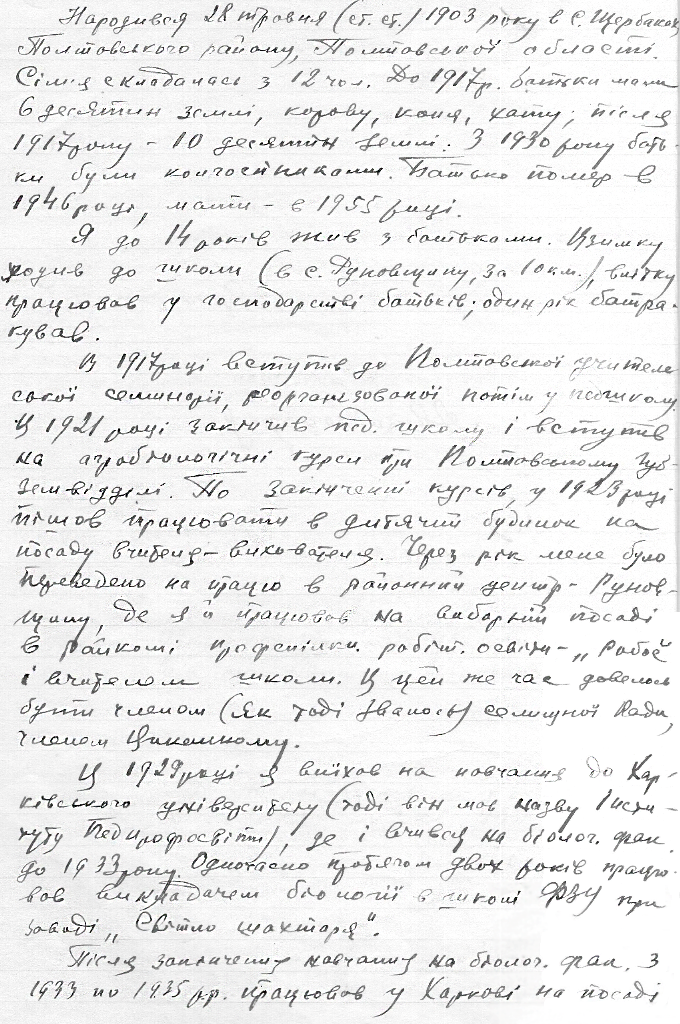 Народився 28 травня (ст. ст.) 1903 року в с. Щербаках,
Полтавського району, Полтавської області.
Сім'я складалась з 12 чол. До 1917 р. батьки мали
6 десятин землі, корову, коня, хату; після
1917 року - 10 десятин землі. З 1930 року бать-
ки були колгоспниками. Батько помер в
1946 році, мати - в 1955 році.
Я до 14 років жив з батьками. Взимку
ходив до школи (в с. Руновщину, за 10 км.), влітку
працював у господарстві батьків; один рік батра-
кував.
В 1917 році вступив до Полтавської учитель
ської семінарії, реорганізованої потім у педшколу.
В 1921 році закінчив пед. школу і вступив
на агробіологічні курси при Полтавському Губ-
земвідділі. По закінченні курсів, у 1923 році
пішов працювати в дитячий будинок на
посаду вчителя - вихователя. Через рік мене було
переведено на працю в районний центр - Рунов-
щину, де я й працював на виборній посаді
в райкомі профспілки робітн. освіти - „Робос"
і вчителем школи. В цей же час довелось
бути членом (як тоді звалось) селищної Ради,
членом Виконкому.
В 1929 році я виїхав на навчання до Хар-
ківського університету (тоді він мав назву Інсти-
туту Педпрофосвіти), де і вчився на біолог. фак.
до 1933 року. Одночасно протягом двох років працю-
вав викладачем біології в школі ФЗУ при
заводі „Світло шахтаря".
Після закінчення навчання на біолог. фак. з
1933 по 1935 р.р. працював у Харкові на посаді